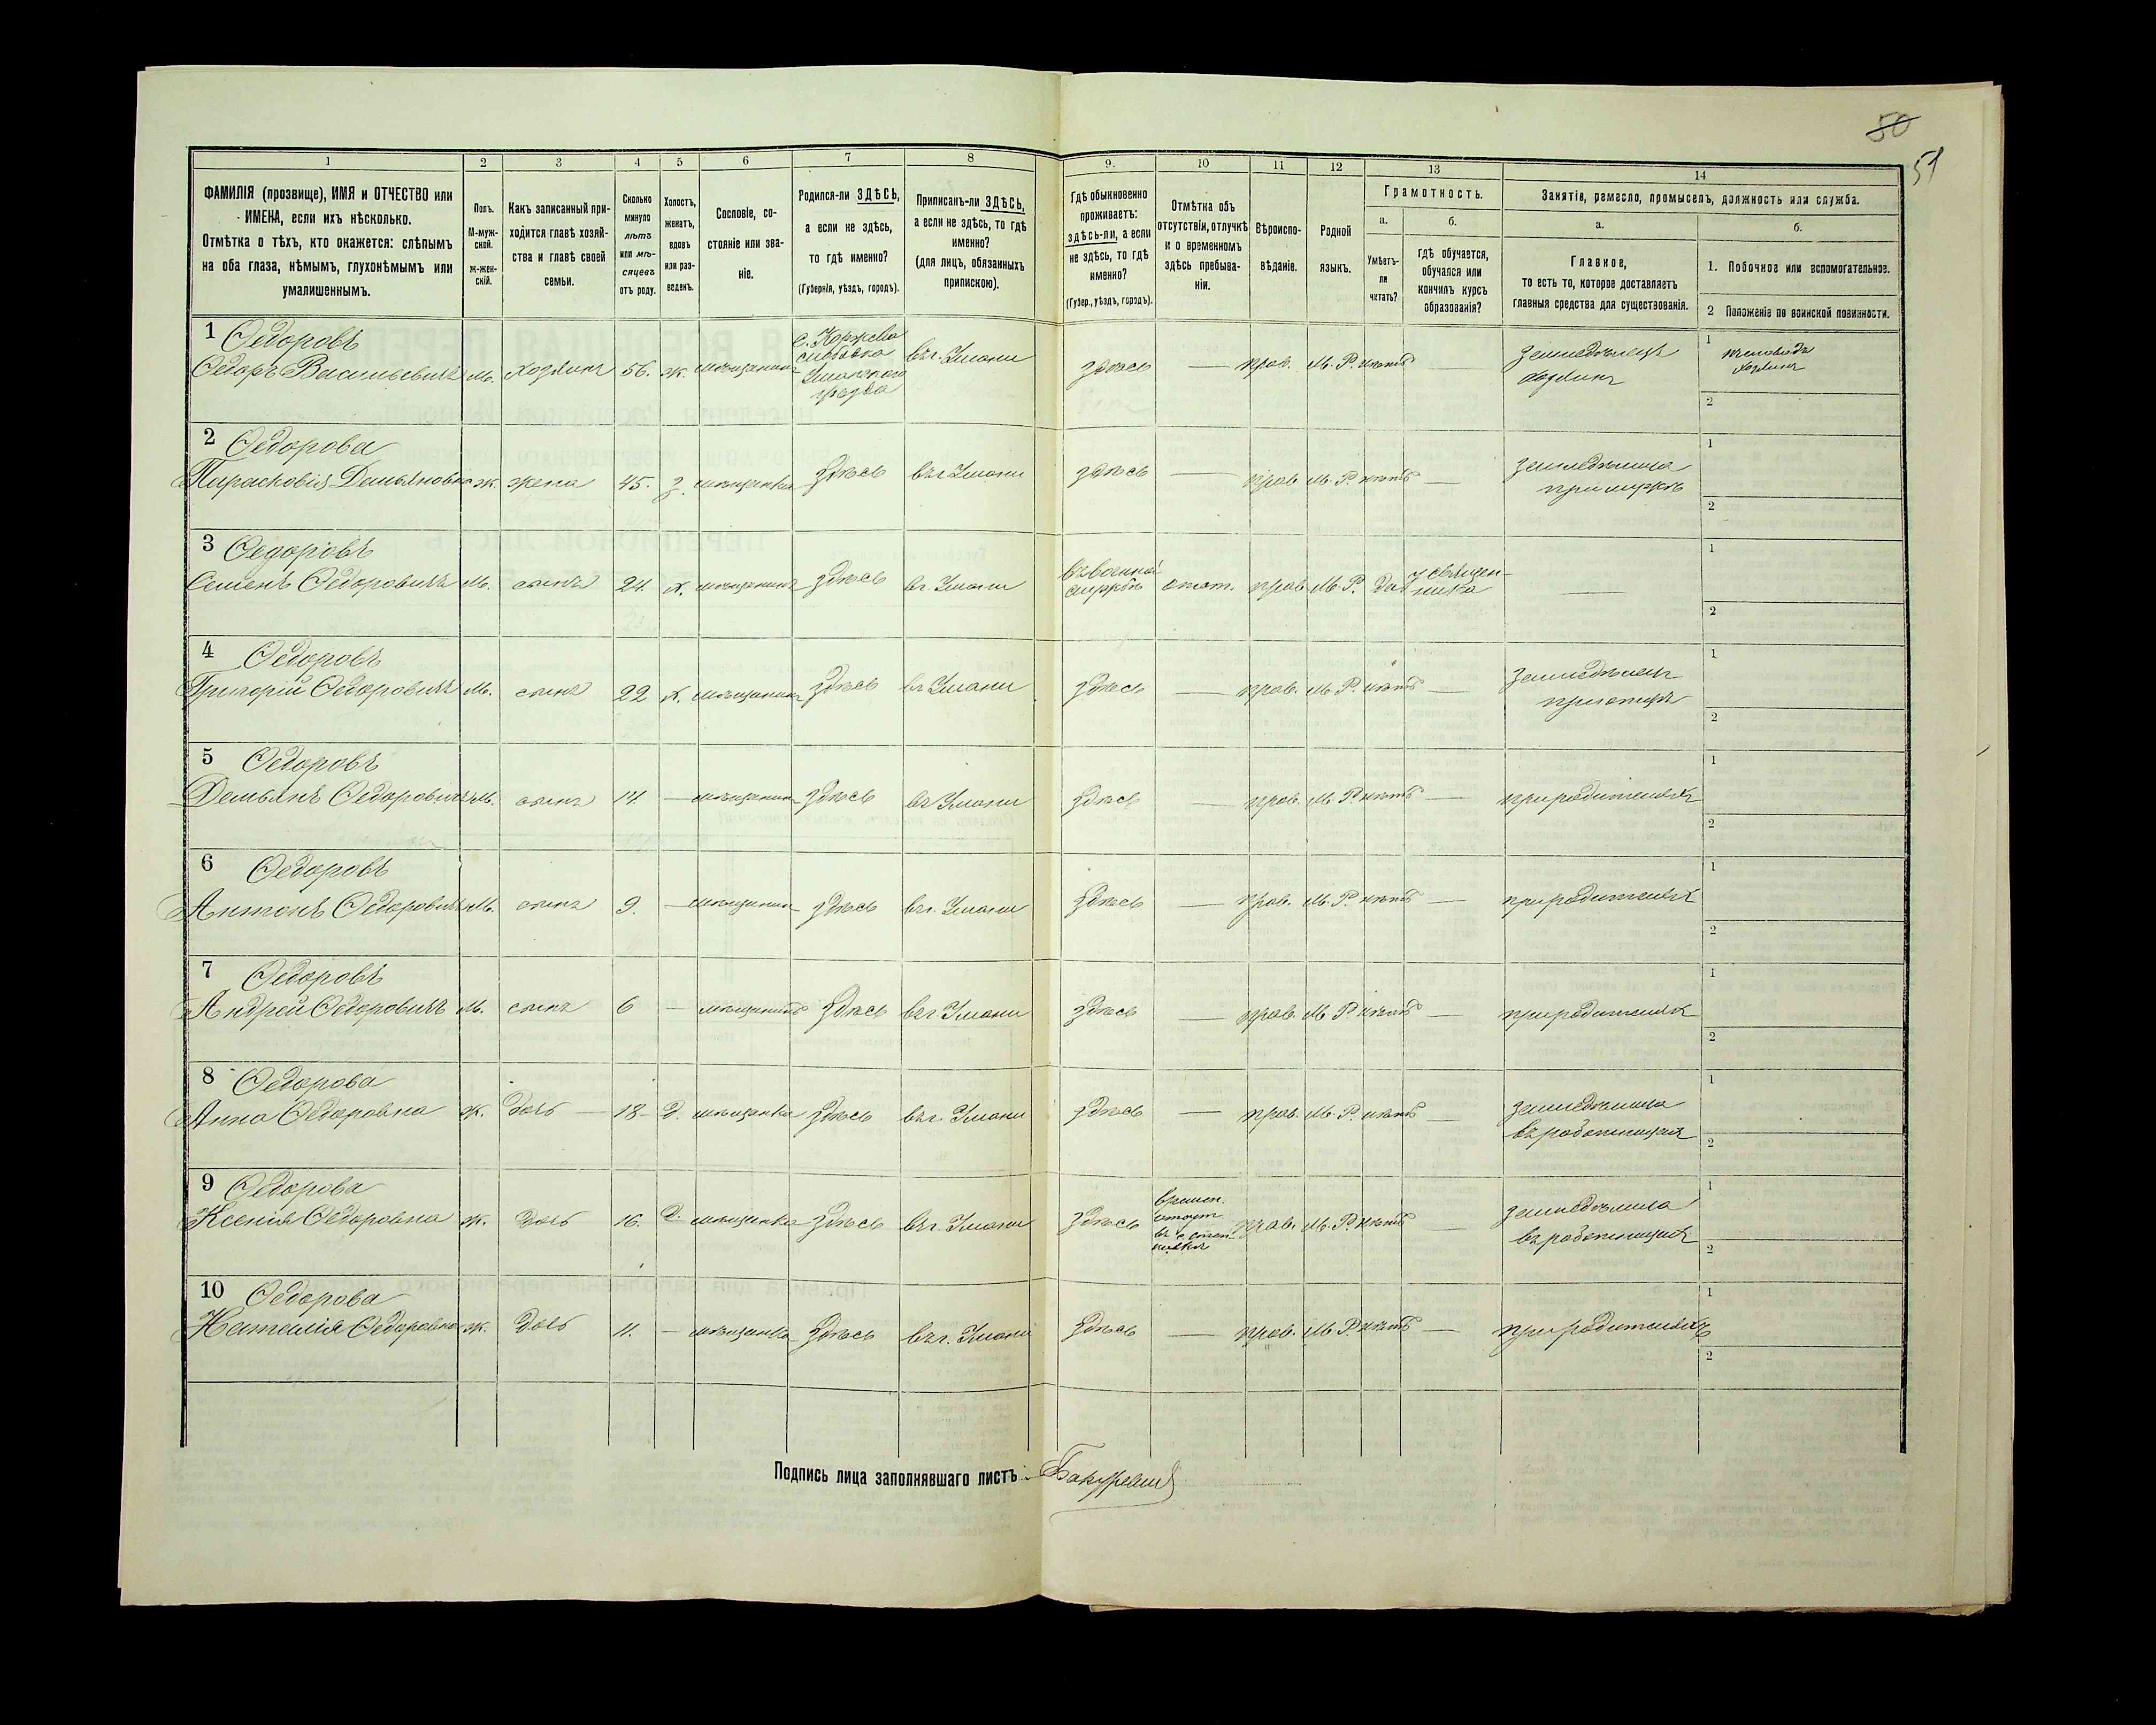 50
51
1 2 3 4 5 6 7 8 9. 10 11 12 13 14
ФАМИЛІЯ (прозвище), ИМЯ и ОТЧЕСТВО или
ИМЕНА, если ихъ нѣсколько.
Отмѣтка о тѣхъ, кто окажется: слѣпымъ
на оба глаза, нѣмымъ, глухонѣмымъ или
умалишеннымъ.
Полъ.
М-муж-
ской.
ж-жен-
скій.
Какъ записанный при-
ходится главѣ хозяй-
ства и главѣ своей
семьи.
Сколько
минуло
лѣтъ
или мѣ-
сяцевъ
отъ роду.
Холостъ,
женатъ,
вдовъ
или раз-
веденъ.
Сословіе, со-
стояніе или зва-
ніе.
Родился-ли ЗДѢСЬ,
а если не здѣсь,
то гдѣ именно?
(Губернія, уѣздъ, городъ).
Приписанъ-ли ЗДѢСЬ,
а если не здѣсь, то гдѣ
именно?
(для лицъ, обязанныхъ
припискою).
Гдѣ обыкновенно
проживаетъ:
здѣсь-ли, а если
не здѣсь, то гдѣ
именно?
(Губер., уѣздъ, городъ).
Отмѣтка объ
отсутствіи, отлучкѣ
и о временномъ
здѣсь пребыва-
ніи.
Вѣроиспо-
вѣданіе.
Родной
языкъ.
Грамотность.
а.
Умѣетъ-
ли
читать?
б.
гдѣ обучается,
обучался или
кончилъ курсъ
образованія?
Занятіе, ремесло, промыселъ, должность или служба.
а.
Главное,
то есть то, которое доставляетъ
главныя средства для существованія.
б.
1. Побочное или вспомогательное.
2 Положеніе по воинской повинности.
1 Ѳедоровъ
Ѳедоръ Васильевичъ М. хозяинъ 56. ж. мѣщанинъ
с. Коржева
слободка
Уманскаго
уѣзда
въ г. Умани здѣсь — прав. М. Р. нѣтъ —
земледѣлецъ
хозяинъ
1 пчеловодъ
хозяинъ
2
2 Ѳедорова
Парасковія Демьяновна ж. жена 45. з. мѣщанка здѣсь въ г. Умани здѣсь — прав. М. Р. нѣтъ —
земледѣлица
при мужѣ
1
2
3 Ѳедоровъ
Семенъ Ѳедоровичъ М. сынъ 24. х. мѣщанинъ здѣсь въ г. Умани
въ военной
службѣ
отст. прав. М. Р. да
у священ-
ника
—
1
2
4 Ѳедоровъ
Григорій Ѳедоровичъ М. сынъ 22 х. мѣщанинъ здѣсь въ г. Умани здѣсь — прав. М. Р. нѣтъ —
земледѣлецъ
при отцѣ
1
2
5 Ѳедоровъ
Демьянъ Ѳедоровичъ М. сынъ 14 — мѣщанинъ здѣсь въ г. Умани здѣсь — прав. М. Р. нѣтъ — при родителяхъ
1
2
6 Ѳедоровъ
Антонъ Ѳедоровичъ М. сынъ 9. — мѣщанинъ здѣсь въ г. Умани здѣсь — прав. М. Р. нѣтъ — при родителяхъ
1
2
7 Ѳедоровъ
Андрей Ѳедоровичъ М. сынъ 6 — мѣщанинъ здѣсь въ г. Умани здѣсь — прав. М. Р. нѣтъ — при родителяхъ
1
2
8 Ѳедорова
Анна Ѳедоровна ж. дочь — 18 — д. мѣщанка здѣсь въ г. Умани здѣсь — прав. М. Р. нѣтъ —
земледѣлица
въ работницахъ
1
2
9 Ѳедорова
Ксенія Ѳедоровна ж. дочь 16. д. мѣщанка здѣсь въ г. Умани здѣсь
времен.
отсут.
прав. М. Р. нѣтъ —
земледѣлица
въ работницахъ
1
2
10 Ѳедорова
Наталія Ѳедоровна ж. дочь 11. — мѣщанка здѣсь въ г. Умани здѣсь — прав. М. Р. нѣтъ — при родителяхъ
1
2
Подпись лица заполнявшаго листъ: